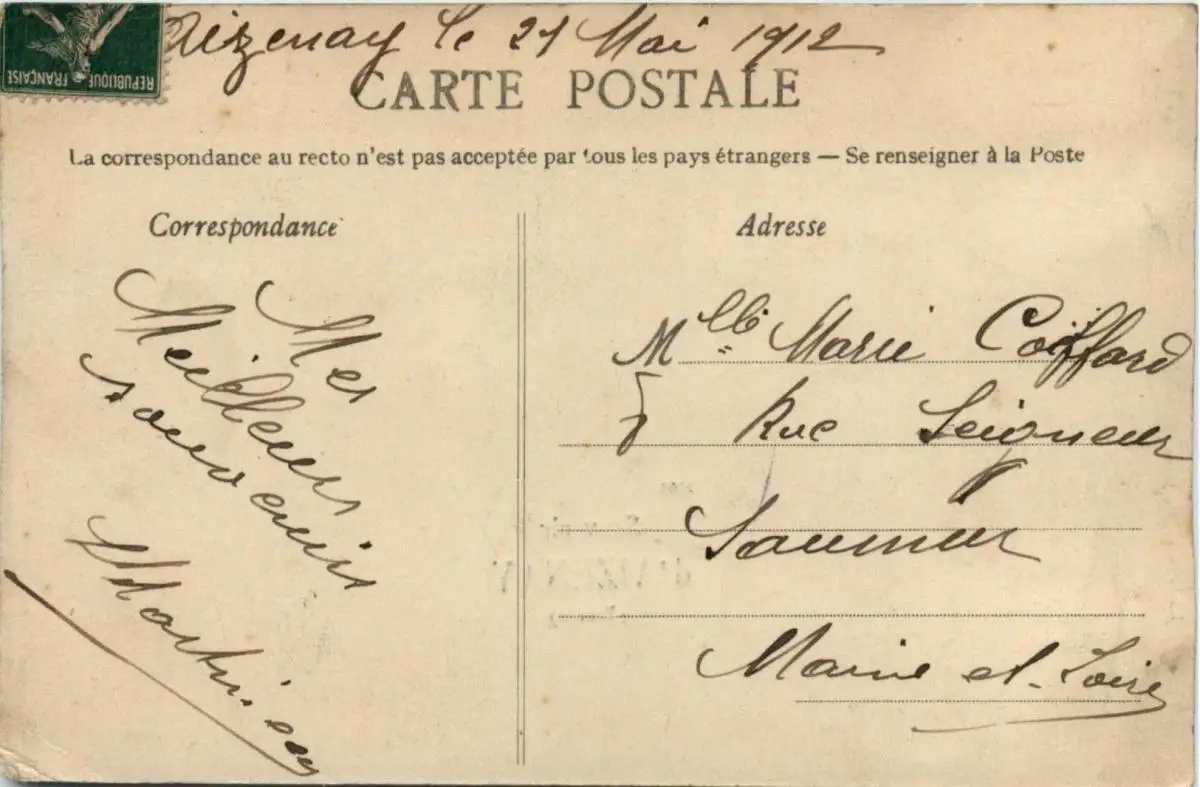 REPUBLIQUE FRANÇAISE
Aizenay le 21 Mai 1912
CARTE POSTALE
La correspondance au recto n'est pas acceptée par tous les pays étrangers — Se renseigner à la Poste
Correspondance
Mes
Meilleurs
souvenirs
Adresse
Mlle Marie Coiffard
Rue Seigneur
Saumur
Maine et-Loire